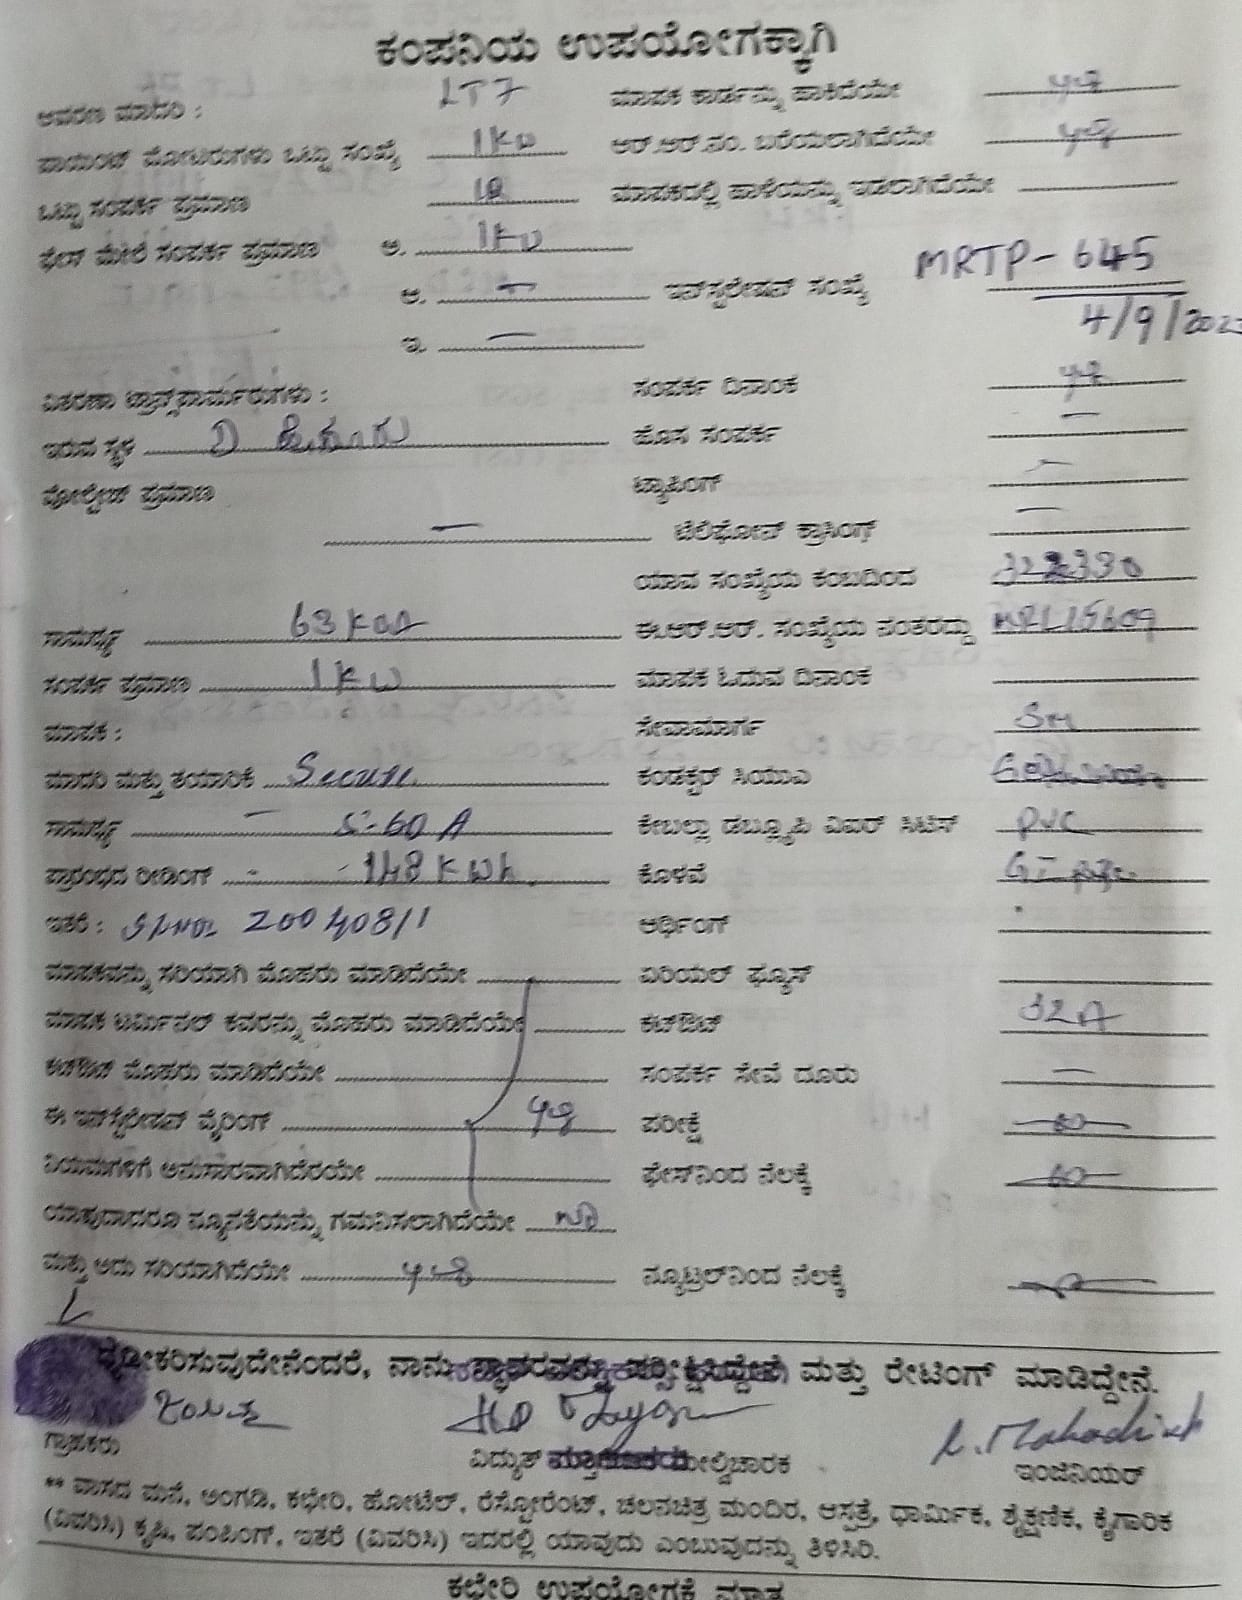 ಕಂಪನಿಯ ಉಪಯೋಗಕ್ಕಾಗಿ
ಆವರಣ ಮಾದರಿ : LT7 ಮಾಪಕ ಕಾರ್ಡನ್ನು ಹಾಕಿದೆಯೇ ಇದೆ
ಪಾಯಿಂಟ್ ಮೋಟರುಗಳು ಒಟ್ಟು ಸಂಖ್ಯೆ 1KW ಆರ್.ಆರ್.ನಂ. ಬರೆಯಲಾಗಿದೆಯೇ ಇದೆ
ಒಟ್ಟು ಸಂಪರ್ಕ ಪ್ರಮಾಣ ಮಾಪಕದಲ್ಲಿ ಹಾಳೆಯನ್ನು ಇಡಲಾಗಿದೆಯೇ
ಫೇಸ್ ಮೇಲೆ ಸಂಪರ್ಕ ಪ್ರಮಾಣ ಅ. 1KW
ಆ. – ಇನ್‌ಸ್ಟಲೇಷನ್ ಸಂಖ್ಯೆ MRTP-645
4/9/202
ಇ. –
ವಿತರಣಾ ಟ್ರಾನ್ಸ್‌ಫಾರ್ಮರುಗಳು : ಸಂಪರ್ಕ ದಿನಾಂಕ ಇದೆ
ಇರುವ ಸ್ಥಳ ಹೊಸ ಸಂಪರ್ಕ –
ವೋಲ್ಟೇಜ್ ಪ್ರಮಾಣ ಟ್ಯಾಪಿಂಗ್ –
– ಟೆಲಿಫೋನ್ ಕ್ರಾಸಿಂಗ್ –
ಯಾವ ಸಂಖ್ಯೆಯ ಕಂಬದಿಂದ
ಸಾಮರ್ಥ್ಯ 63 KVA ಈ.ಆರ್.ಆರ್. ಸಂಖ್ಯೆಯ ನಂತರದ್ದು MRL15609
ಸಂಪರ್ಕ ಪ್ರಮಾಣ 1KW ಮಾಪಕ ಓದುವ ದಿನಾಂಕ
ಮಾಪಕ : ಸೇವಾಮಾರ್ಗ SM
ಮಾದರಿ ಮತ್ತು ತಯಾರಿಕೆ Secure ಕಂಡಕ್ಟರ್ ಸಿಯುಎ
ಸಾಮರ್ಥ್ಯ – 5-60 A ಕೇಬಲ್ಲಾ ಡಬ್ಲ್ಯೂಪಿ ವಿಐಆರ್ ಸಿಟಿಸ್ PVC
ಪ್ರಾರಂಭದ ರೀಡಿಂಗ್ - 148 KWh. ಕೊಳವೆ GI pipe
ಇತರೆ : Sl No: 20040811 ಆರ್ಥಿಂಗ್
ಮಾಪಕವನ್ನು ಸರಿಯಾಗಿ ಮೊಹರು ಮಾಡಿದೆಯೇ ಏರಿಯಲ್ ಫ್ಯೂಸ್
ಮಾಪಕ ಟರ್ಮಿನಲ್ ಕವರನ್ನು ಮೊಹರು ಮಾಡಿದೆಯೇ ಕಟ್‌ಔಟ್ 32A
ಕಟ್‌ಔಟ್ ಮೊಹರು ಮಾಡಿದೆಯೇ ಸಂಪರ್ಕ ಸೇವೆ ದೂರು –
ಈ ಇನ್‌ಸ್ಟಲೇಷನ್ ವೈರಿಂಗ್ ಇದೆ ಪರೀಕ್ಷೆ
ನಿಯಮಗಳಿಗೆ ಅನುಸಾರವಾಗಿದೆರಯೇ ಫೇಸ್‌ನಿಂದ ನೆಲಕ್ಕೆ
ಯಾವುದಾದರೂ ನ್ಯೂನತೆಯನ್ನು ಗಮನಿಸಲಾಗಿದೆಯೇ ಇಲ್ಲ
ಮತ್ತು ಅದು ಸರಿಯಾಗಿದೆಯೇ ಇದೆ ನ್ಯೂಟ್ರಲ್‌ನಿಂದ ನೆಲಕ್ಕೆ
ದೃಢೀಕರಿಸುವುದೇನೆಂದರೆ, ನಾನು ಸ್ಥಾವರವನ್ನು ಪರೀಕ್ಷಿಸಿದ್ದೇನೆ ಮತ್ತು ರೇಟಿಂಗ್ ಮಾಡಿದ್ದೇನೆ.
ಗ್ರಾಹಕರು ವಿದ್ಯುತ್ ಮೇಲ್ವಿಚಾರಕ ಇಂಜಿನಿಯರ್
** ವಾಸದ ಮನೆ, ಅಂಗಡಿ, ಕಛೇರಿ, ಹೋಟೆಲ್, ರೆಸ್ಟೋರೆಂಟ್, ಚಲನಚಿತ್ರ ಮಂದಿರ, ಆಸ್ಪತ್ರೆ, ಧಾರ್ಮಿಕ, ಶೈಕ್ಷಣಿಕ, ಕೈಗಾರಿಕ
(ವಿವರಿಸಿ) ಕೃಷಿ, ಪಂಪಿಂಗ್, ಇತರೆ (ವಿವರಿಸಿ) ಇದರಲ್ಲಿ ಯಾವುದು ಎಂಬುವುದನ್ನು ತಿಳಿಸಿರಿ.
ಕಛೇರಿ ಉಪಯೋಗಕ್ಕೆ ಮಾತ್ರ